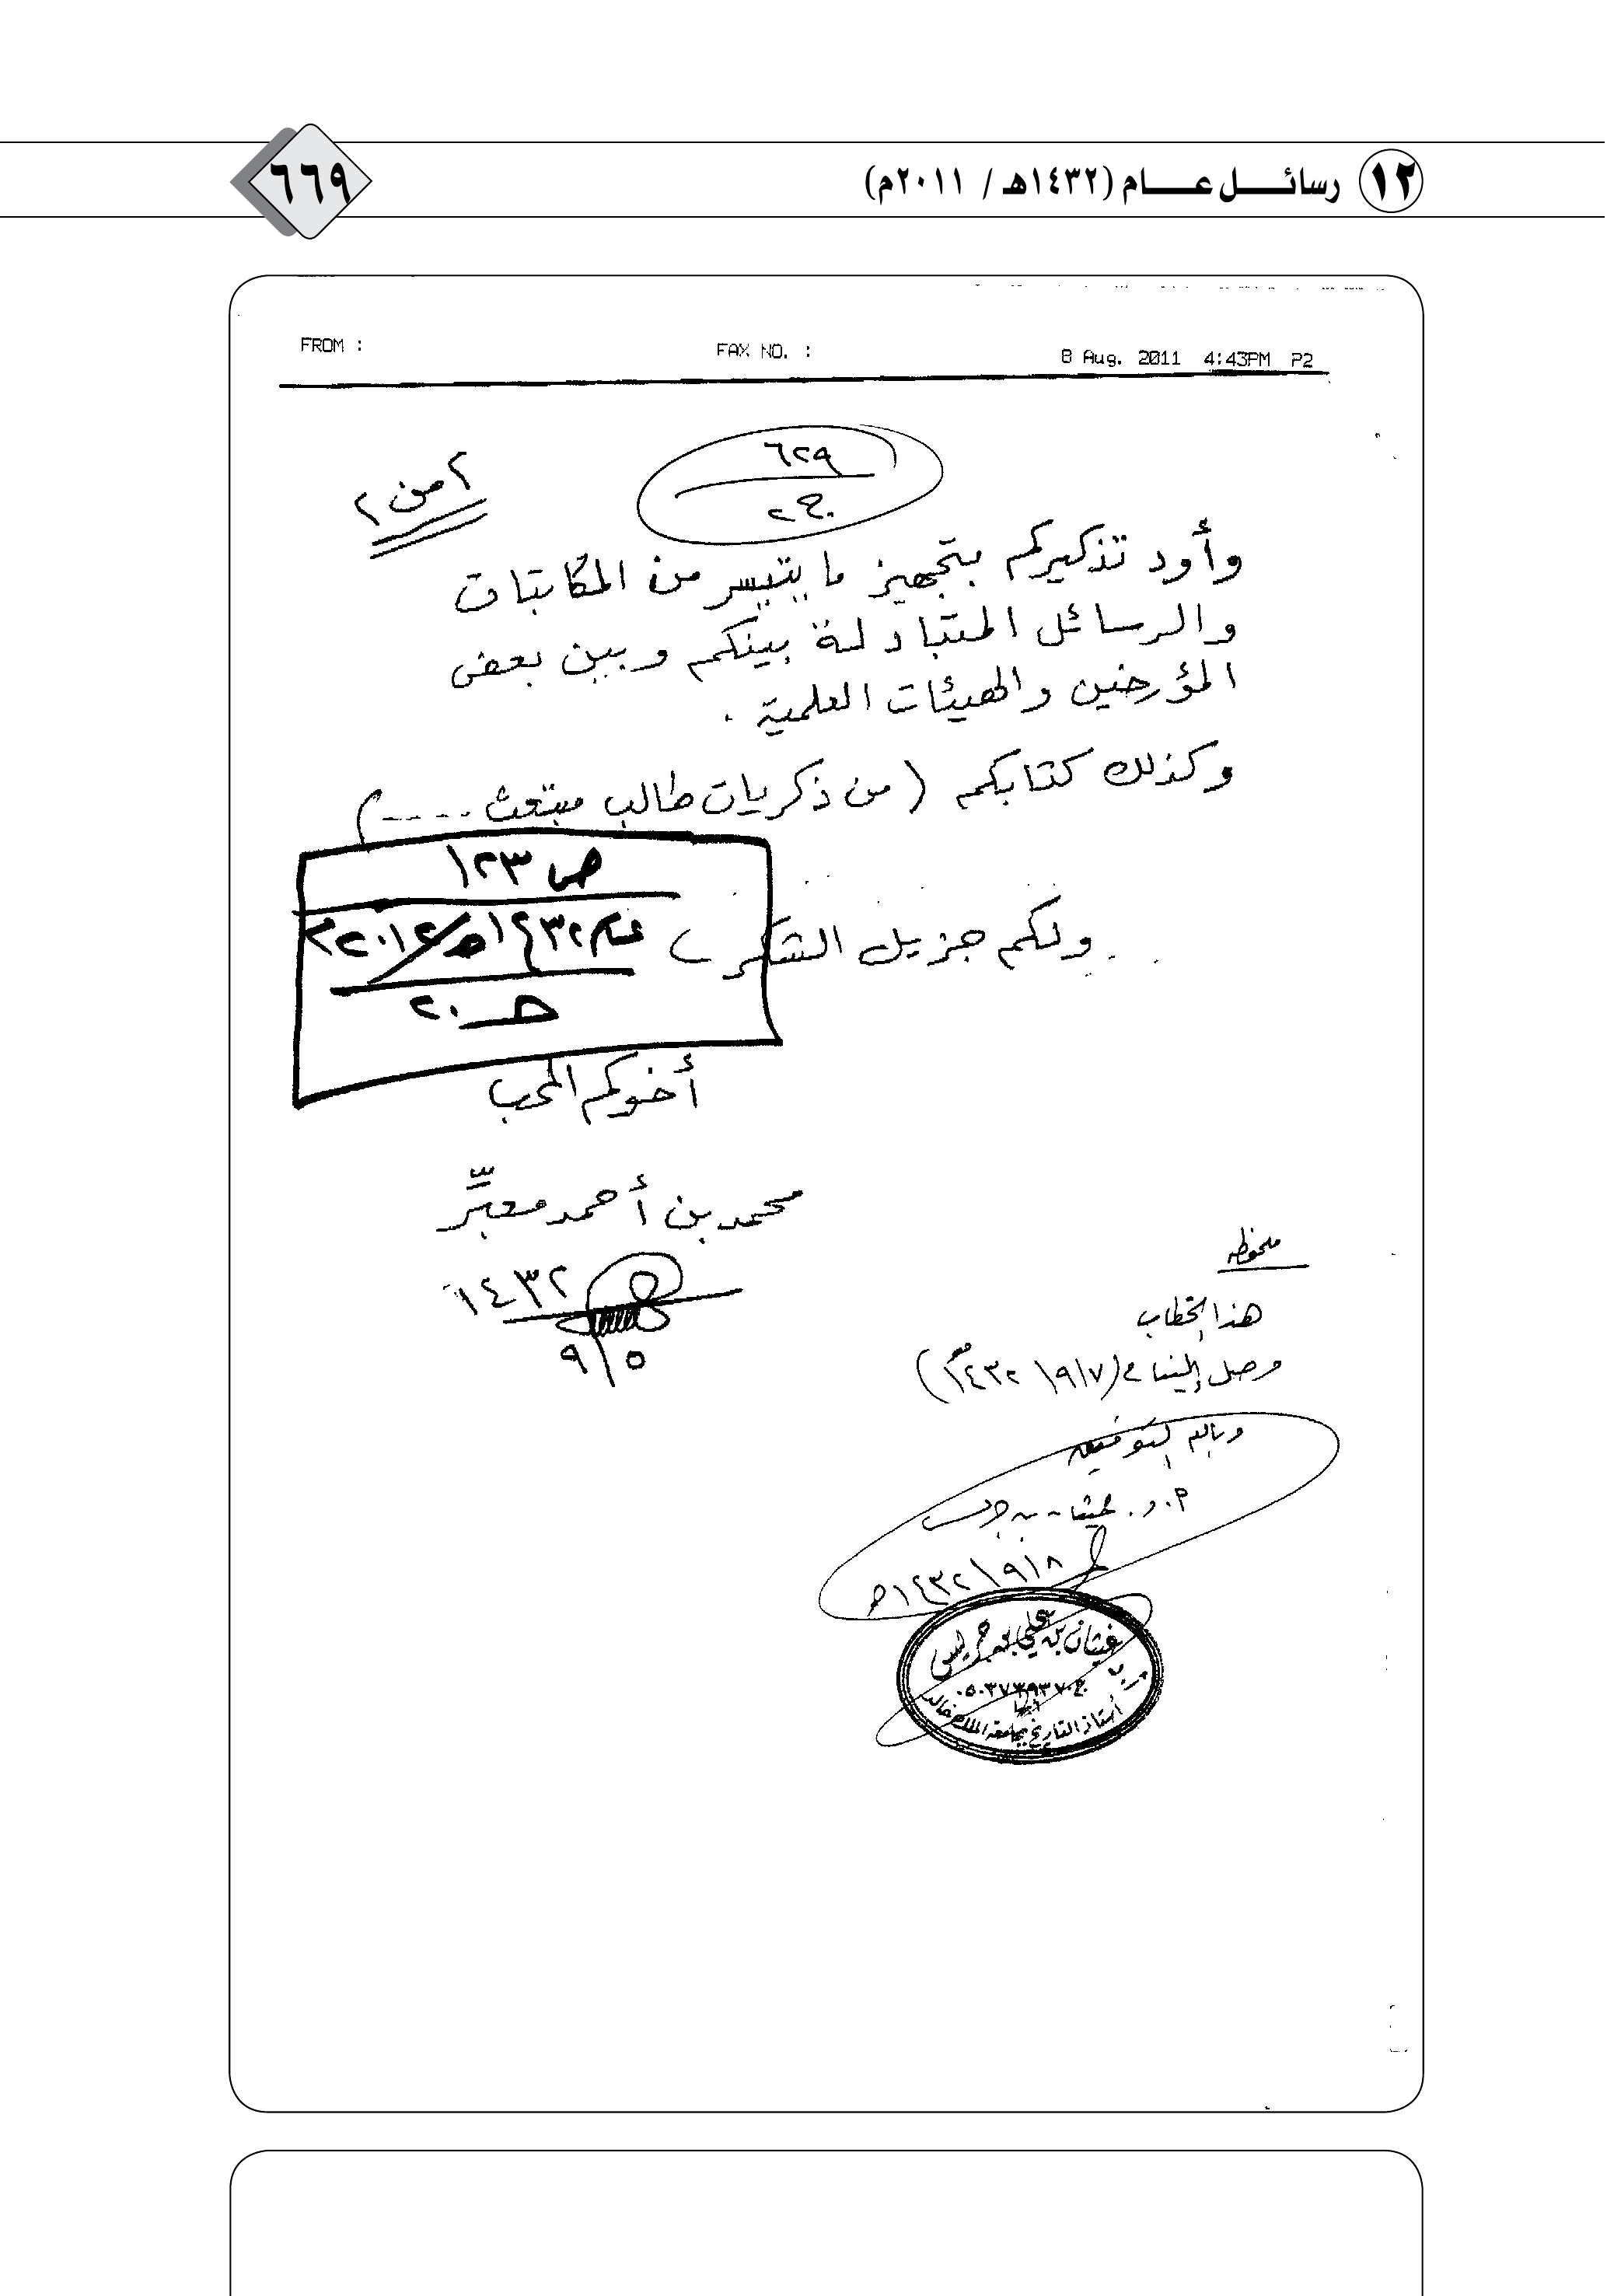 ١٢ رسائل عام (١٤٣٢هـ / ٢٠١١م)
٦٦٩
FROM :
FAX NO. :
8 Aug. 2011 4:43PM P2
٦٢٩
ج٢
٢ من ٢
وأود تذكيركم بتجهيز ما يتيسر من المكاتبات
والرسائل المتبادلة بينكم وبين بعض
المؤرخين والهيئات العلمية .
وكذلك كتابكم ( من ذكريات طالب مبتعث ---- )
ص ١٢٣
عام ١٤٣٢هـ/٢٠١٢م
حـ ٢٠
ولكم جزيل الشكر
أخوكم المحب
محمد بن أحمد معبِّر
١٤٣٢
٩/٥
ملحوظه
هذا الخطاب
وصل إلينا في (١٤٣٢/٩/٧هـ)
وبالله التوفيق
أ.د. غيثان بن جريس
١٤٣٢/٩/٨هـ
غيثان بن علي بن جريس
ج٠٥٠٣٧٣٩٣٧٠
أبها
أستاذ التاريخ بجامعة الملك خالد